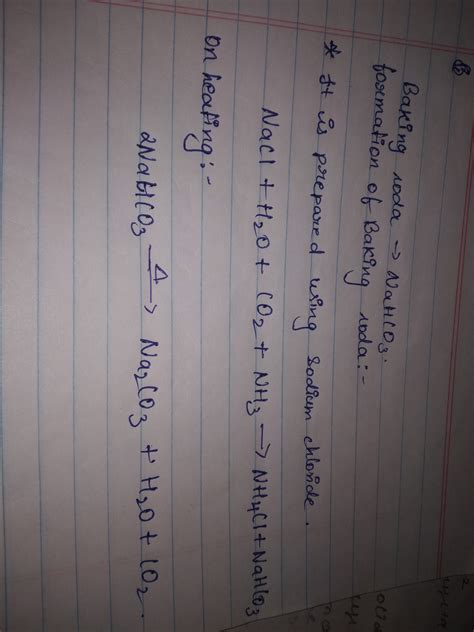 Baking soda → NaHCO3.
formation of Baking soda:-
* It is prepared using sodium chloride.
NaCl + H2O + CO2 + NH3 → NH4Cl + NaHCO3
on heating:-
2NaHCO3 —Δ→ Na2CO3 + H2O + CO2.